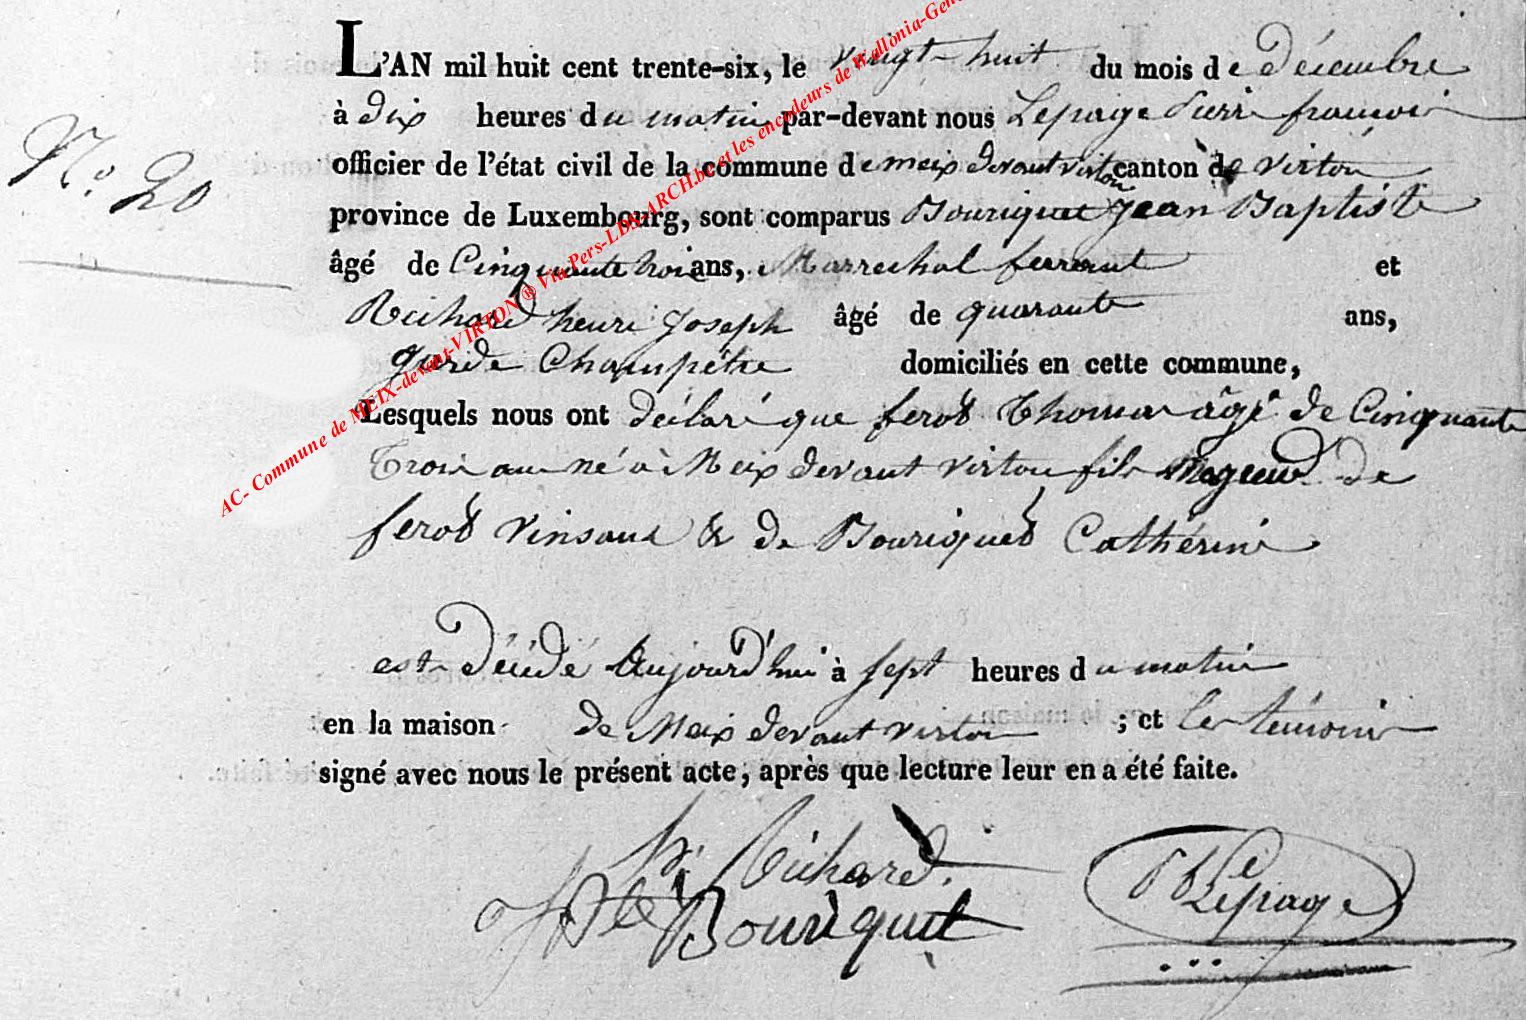 L'AN mil huit cent trente-six, le vingt-huit du mois de décembre
à dix heures du matin par-devant nous Lepage Pierre françois
N.o 20
officier de l'état civil de la commune de meix devant virton canton de virton
province de Luxembourg, sont comparus Bouriquet Jean Baptiste
âgé de Cinquante trois ans, Marrechal ferrant et
Richard henri Joseph âgé de quarante ans,
garde Champêtre domiciliés en cette commune,
Lesquels nous ont déclaré que ferot Thomas âgé de Cinquante
Trois ans né à Meix devant virton fils Mageur de
ferot Vinsant & de Bouriquet Cathérine
est Décédé Aujourd'hui à sept heures du matin
en la maison de Meix devant virton ; et les témoins
signé avec nous le présent acte, après que lecture leur en a été faite.
Richard
Bouriquet
Lepage
AC- Commune de MEIX-devant-VIRTON ® Via Pers-LDS-ARCH.be et les encodeurs de Wallonia-Gen